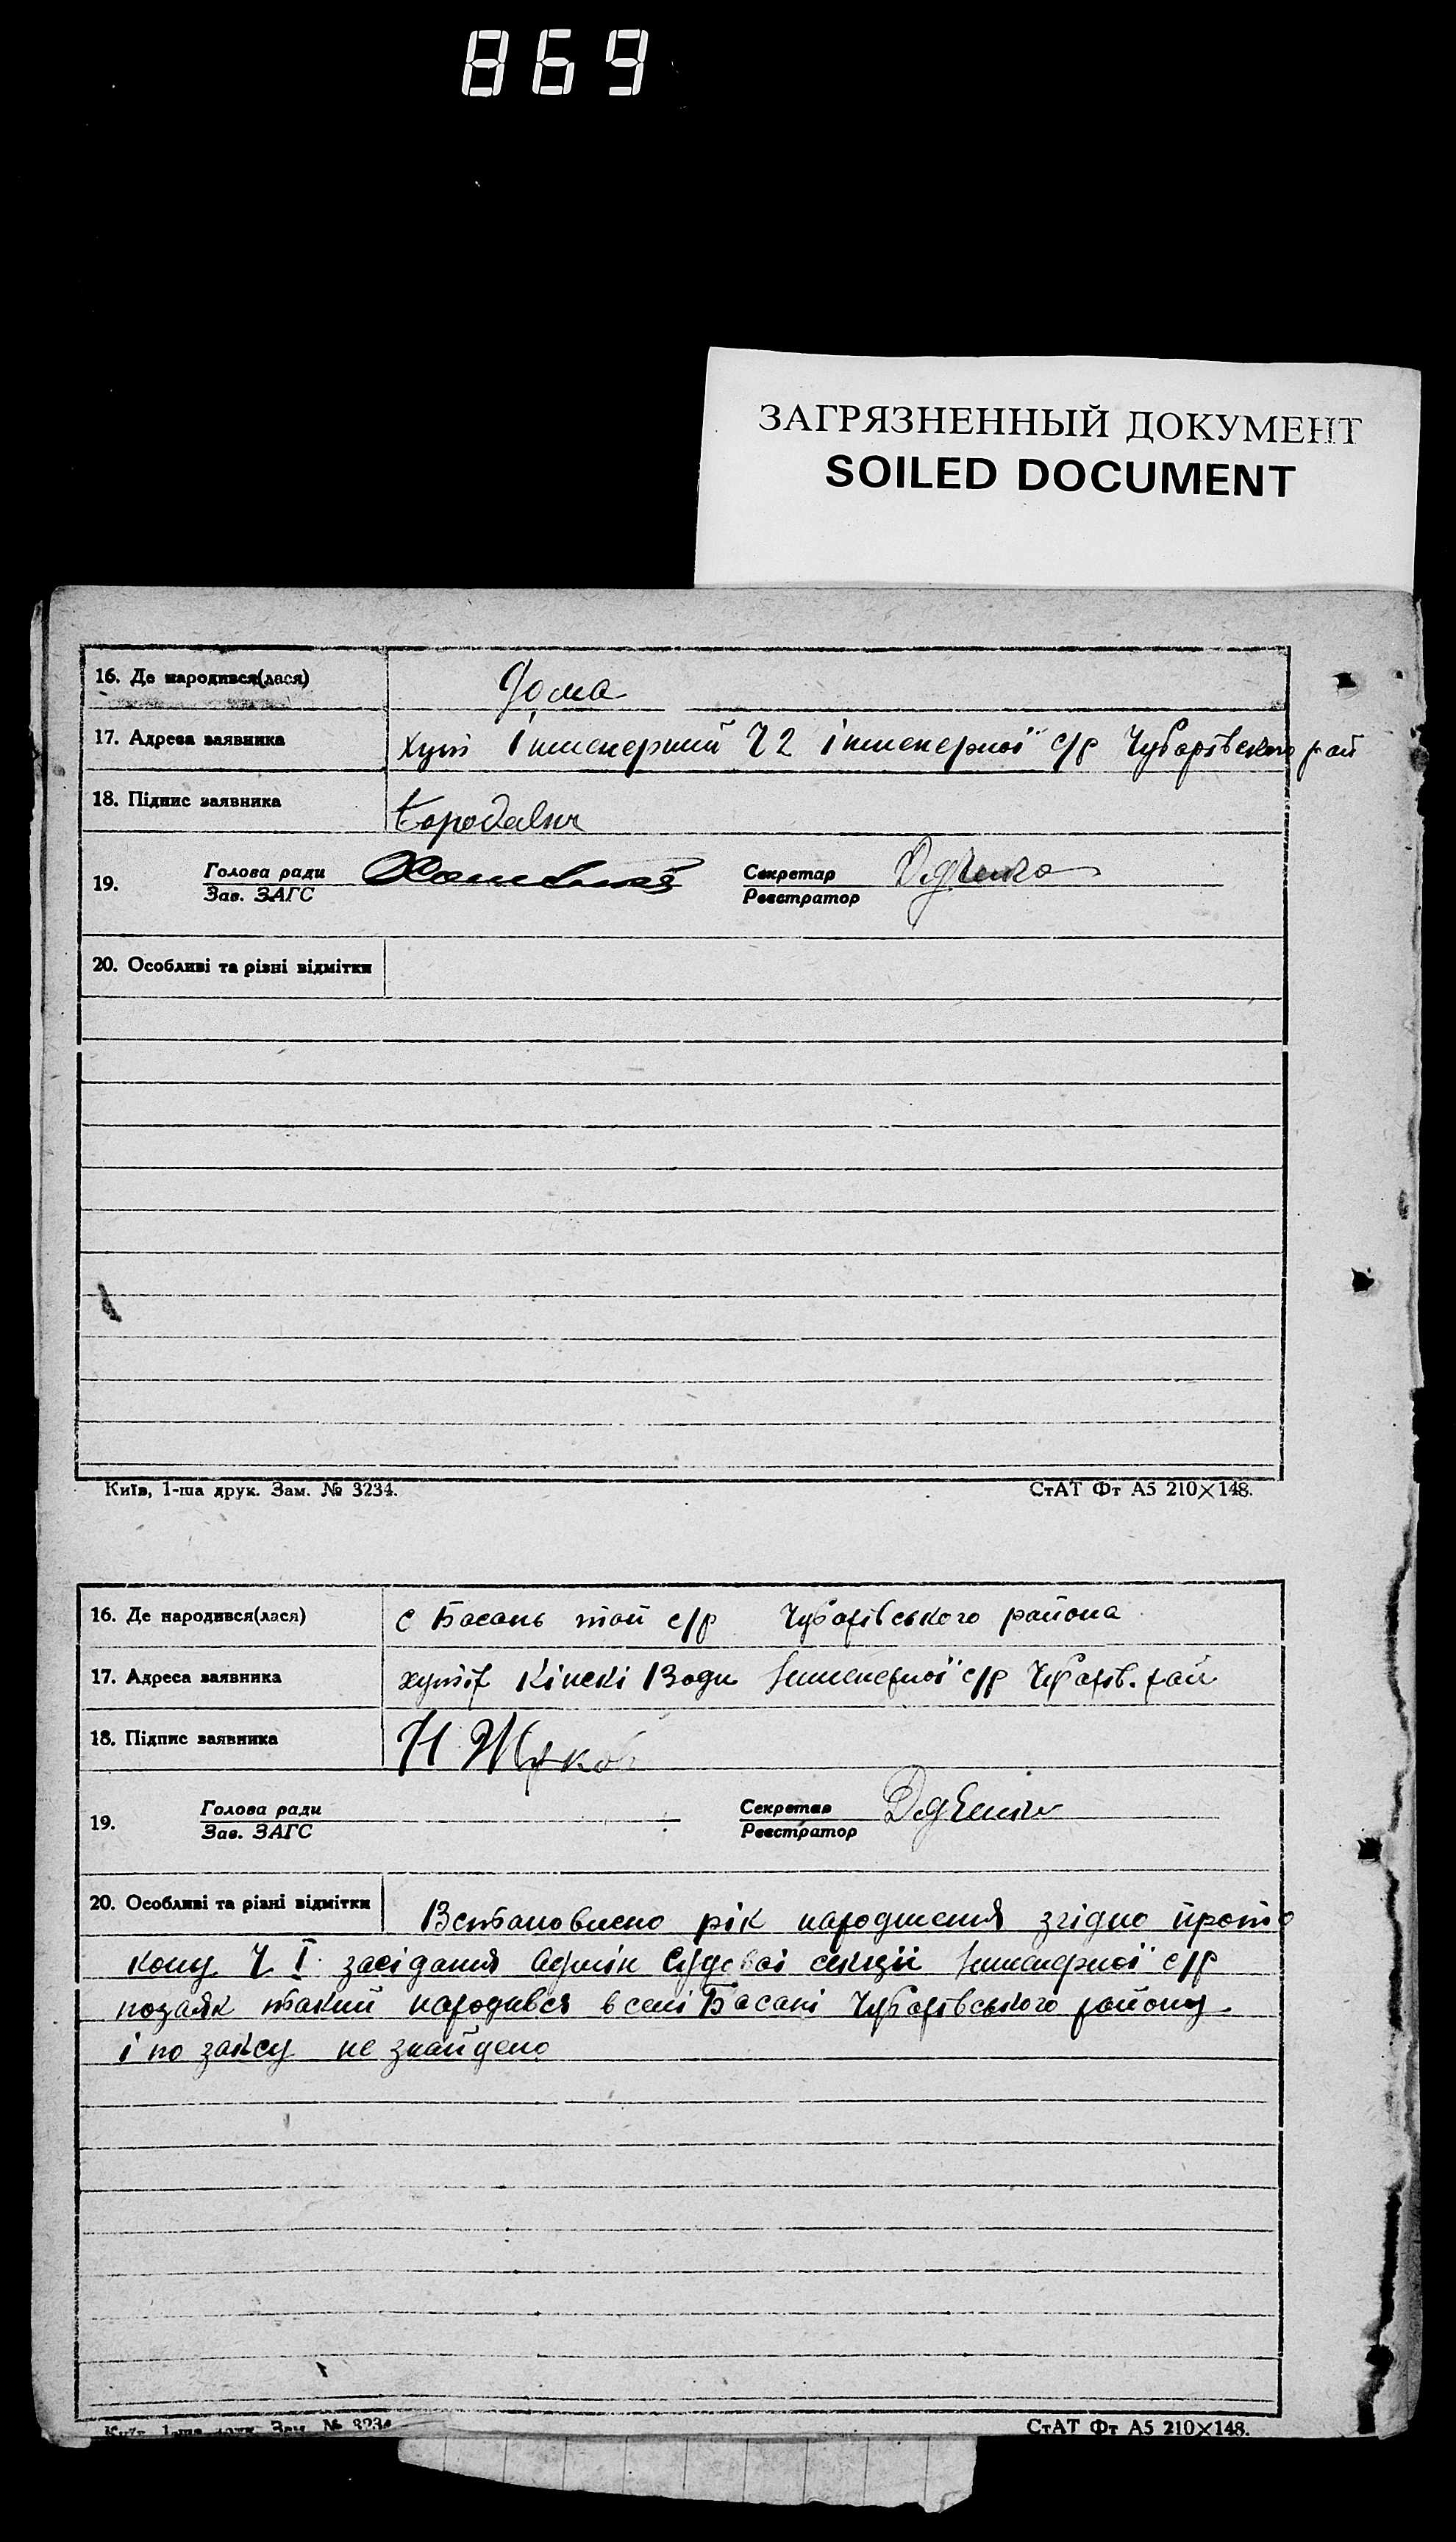 869
ЗАГРЯЗНЕННЫЙ ДОКУМЕНТ
SOILED DOCUMENT
16. Де народився(лася) Дома
17. Адреса заявника хут Інженерний Ч 2 інженерної с/р Чубарівського рай
18. Підпис заявника
19. Голова ради Зав. ЗАГС Секретар Реєстратор
20. Особливі та різні відмітки
Київ, 1-ша друк. Зам. № 3234. СтАТ Фт А5 210×148.
16. Де народився(лася) с Басань той с/р Чубарівського района
17. Адреса заявника хутір Кінскі Води Інженерної с/р Чубарів. рай
18. Підпис заявника Н Жуков
19. Голова ради Зав. ЗАГС Секретар Реєстратор
20. Особливі та різні відмітки Встановлено рік народження згідно прото
колу Ч I засідання Адмін Судової секції Інженерної с/р
позаяк такий народився в селі Басані Чубарівського району
і по загсу не знайдено
Київ, 1-ша друк. Зам. № 3234 СтАТ Фт А5 210×148.